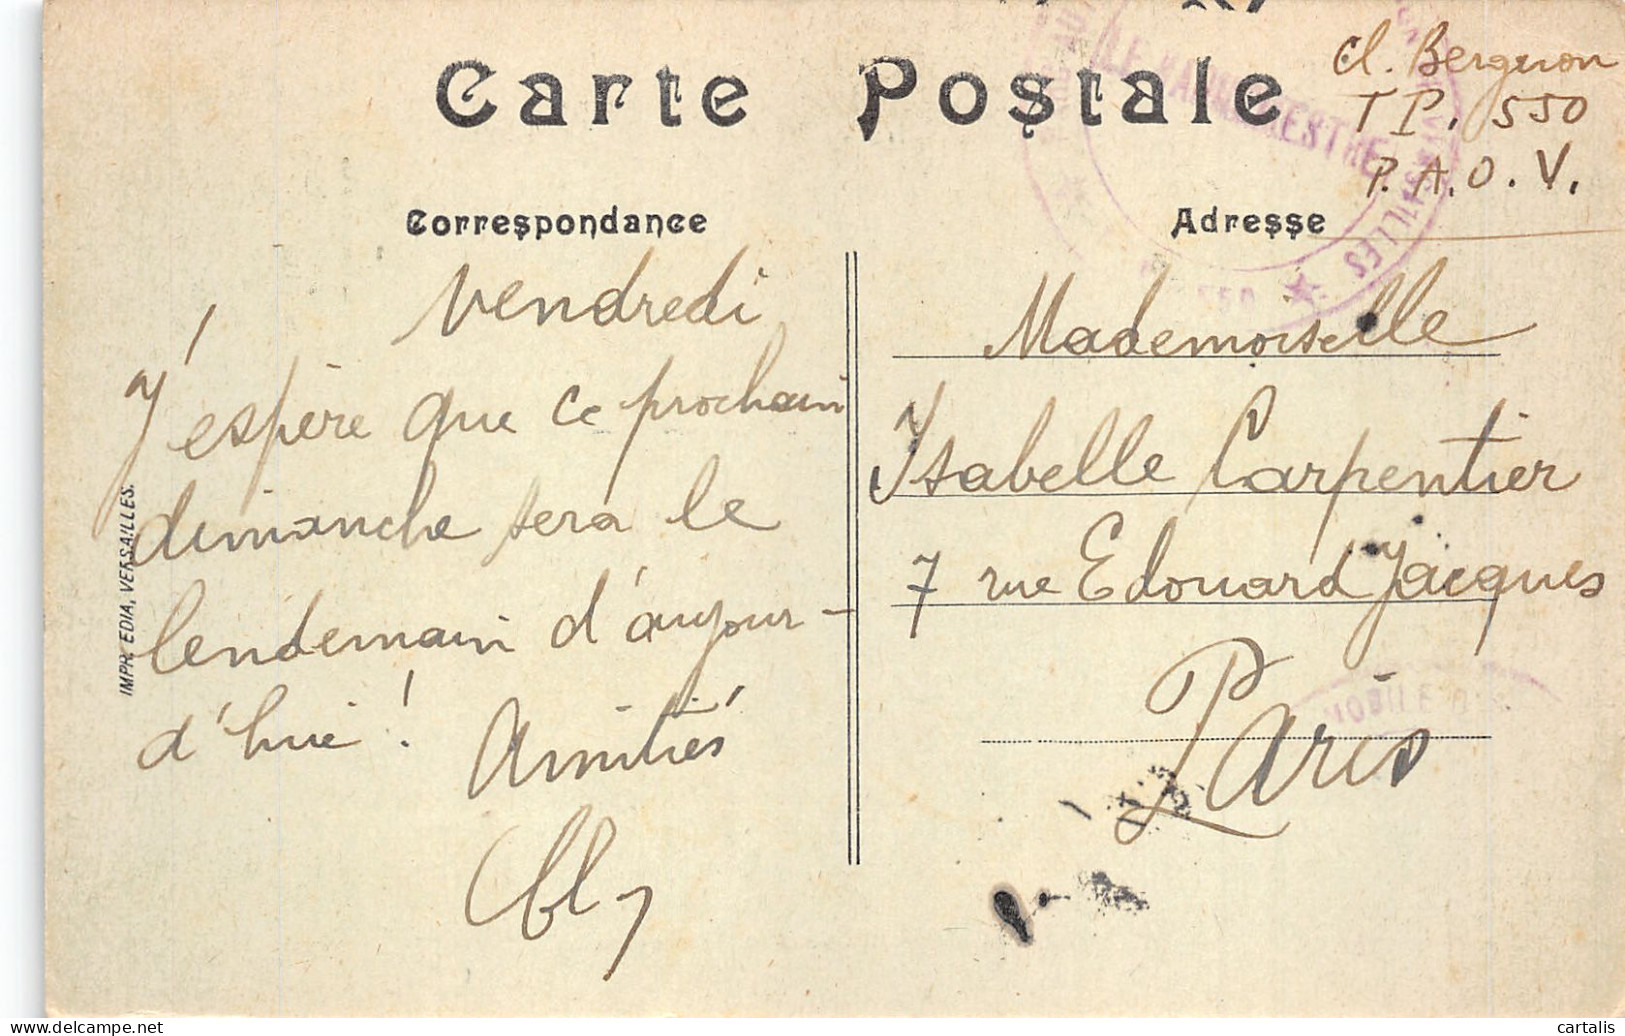 Carte Postale
cl. Bergeron
T P. 550
P. A. O. V.
Correspondance
Adresse
VERSAILLES
Vendredi
J'espère que ce prochain
dimanche sera le
lendemain d'aujour-
d'hui !
Amitiés
Mademoiselle
Isabelle Carpentier
7 rue Edouard Jacques
Paris
IMPR. EDIA, VERSAILLES.
cartalis
www.delcampe.net